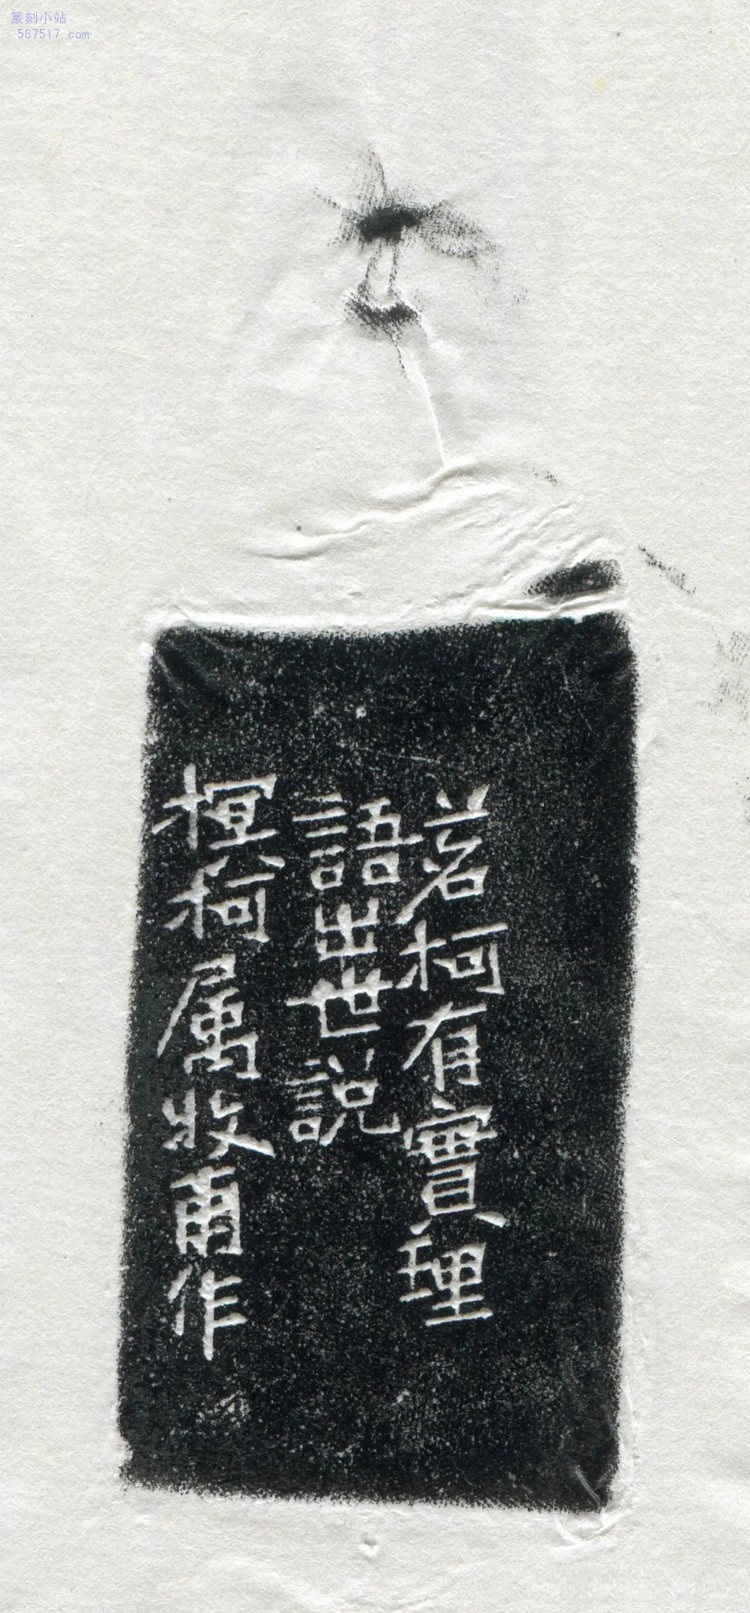 篆刻小站
567517.com
茗柯有實理
語出世說
柯属牧甫作